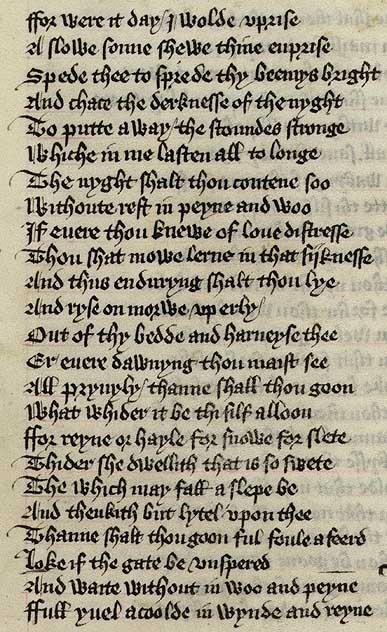 ffor were it day / I wolde vprise
A slowe sonne shewe thine enprise
Spede thee to sprede thy beemys bright
And chace the derknesse of the nyght
To putte a way / the stoundes stronge
Whiche in me lasten all to longe
The nyght shalt thou contene soo
Withoute rest in peyne and woo
If euere thou knewe of loue distresse
Thou shat mowe lerne in that sijknesse
And thus enduryng shalt thou lye
And ryse on morwe vp erly /
Out of thy bedde and harneyse thee
Er euere dawnyng thou maist see
All pryuyly / thanne shall thou goon
What whider it be thi silf alloon
ffor reyne or hayle for snowe for slete
Thider she dwellith that is so swete
The which may fall a slepe be
And thenkith but lytel vpon thee
Thanne shalt thou goon ful foule a feerd
Loke if the gate be vnspered
And waite without in woo and peyne
ffull yuel a coolde in wynde and reyne